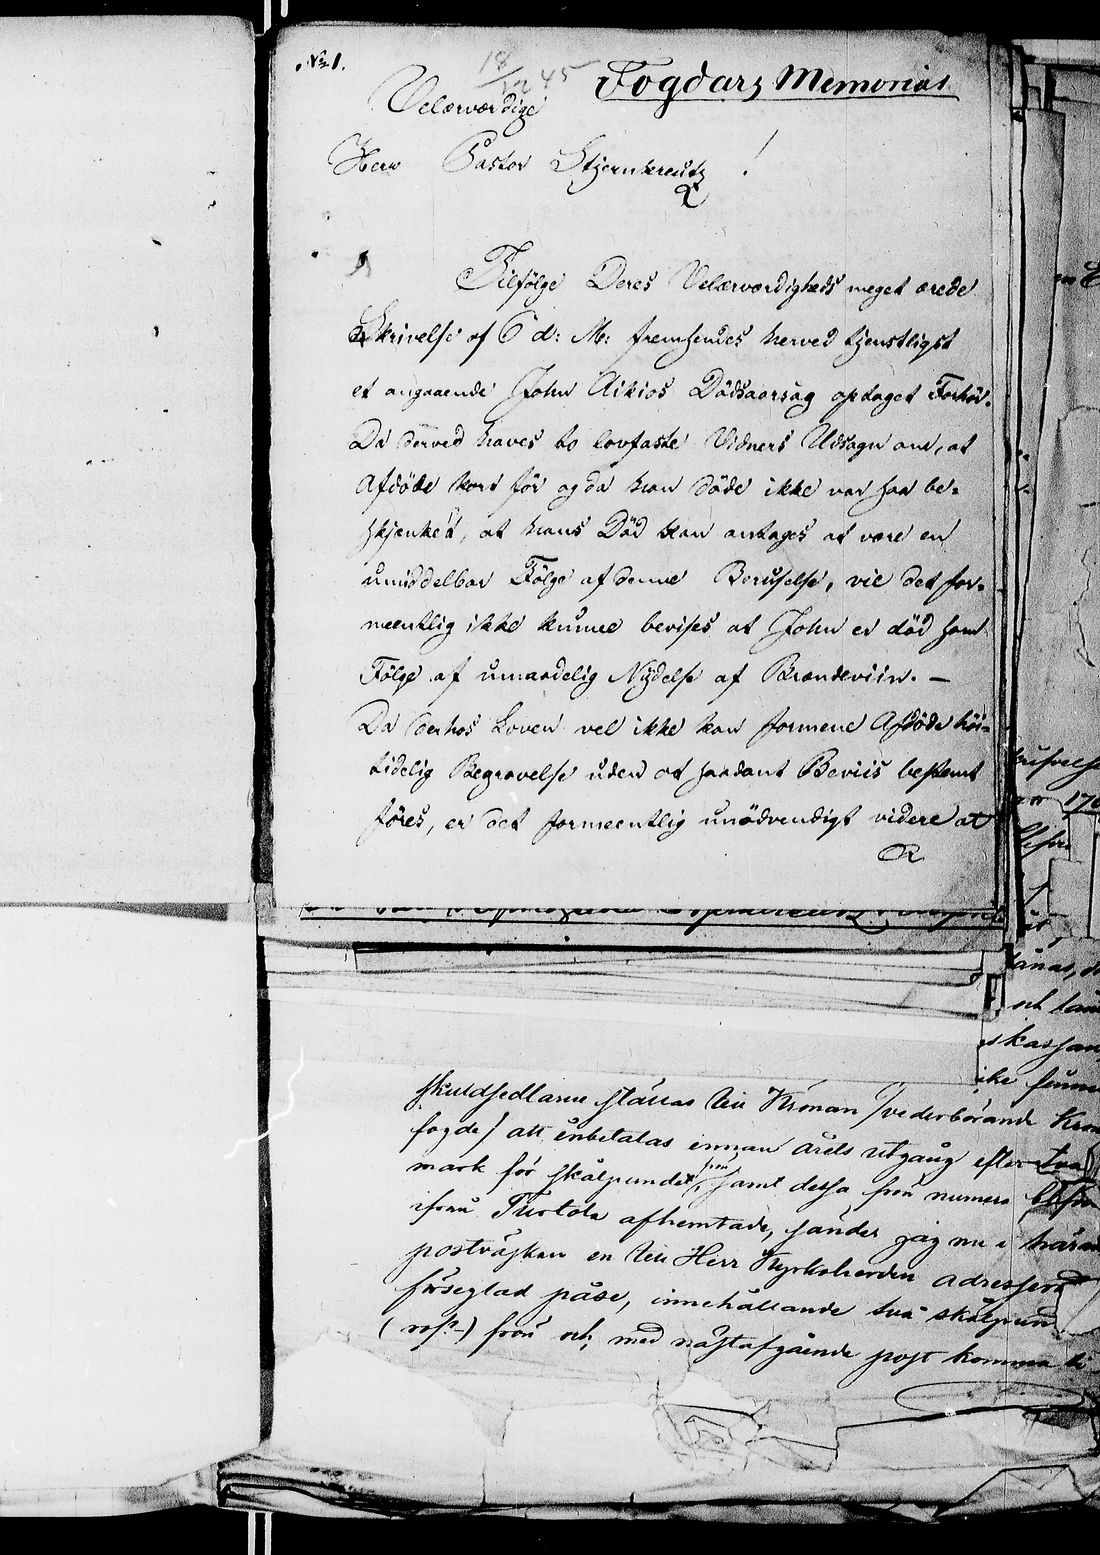 No 1.
18/12 45
Fogdars Memorial
Velærværdige
Herr Pastor Stjernkreutz!
Tilfölge Deres Velærværdigheds meget ærede
Skrivelse af 6 d: M: fremsendes herved tjenstligst
et angaaende John Aikios Dödsaarsag optaget Forhör.
Da derved haves to lovfaste Vidners Udsagn om, at
Afdöde kort för og da han döde ikke var saa be-
skjenket, at hans Död kan antages at være en
umiddelbar Fölge af denne Beruselse, vil det for-
meentlig ikke kunne bevises at John er död som
Fölge af umaadelig Nydelse af Brændeviin. —
Da derhos Loven vel ikke kan formene Afdöde höi-
tidelig Begravelse uden at saadant Beviis bestemt
föres, er det formeentlig unödvendigt videre at
skuldsedlarne ställas till Kronan /vederbörande Kron
fogde/ att inbetalas innan årets utgång efter två
mark för skålpundet, samt dessa frön numera blifvit
ifrån Turtola afhemtade, sänder jag nu i härva
postväskan en till Herr Kyrkoherden adresserad
förseglad påse, innehållande två skålpund
(rofs-) frön och med nästafgående post komma
krifvelse
170
lånas, d
och län
skarpan
ike finn